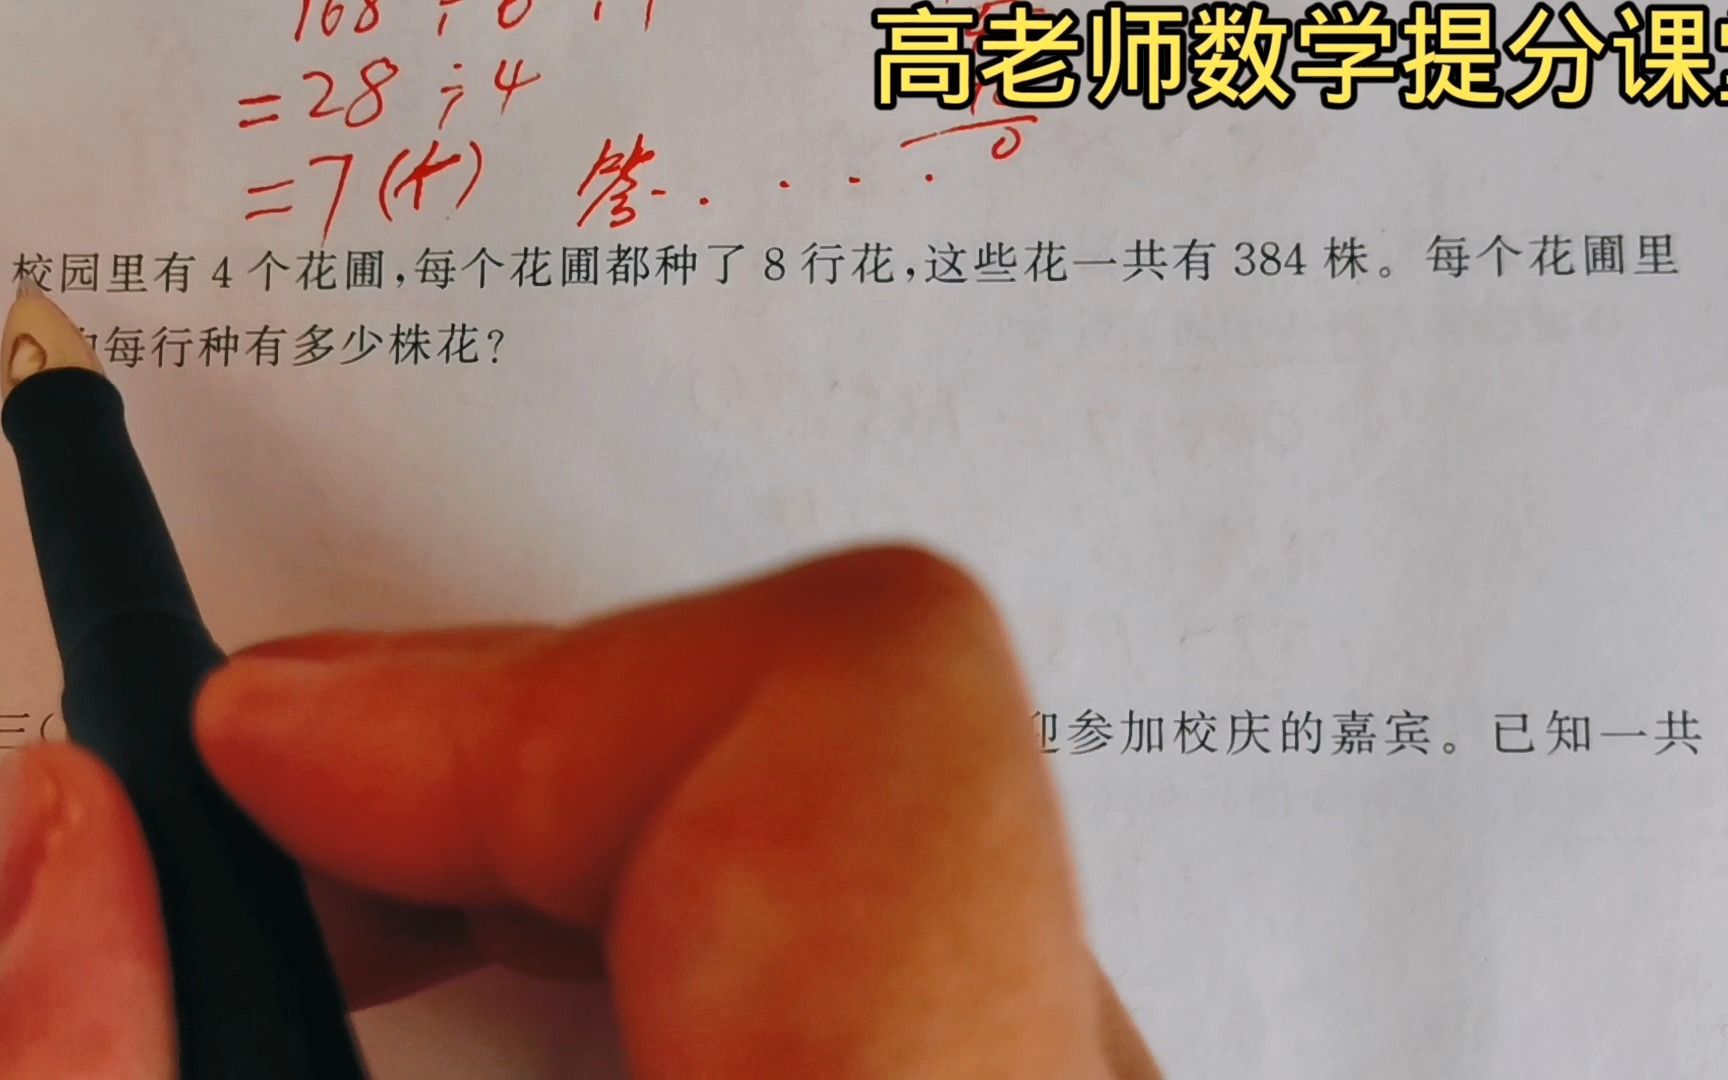 高老师数学提分课
168÷6÷4
=28÷4
=7(个) 答. . . .
0
校园里有4个花圃,每个花圃都种了8行花,这些花一共有384株。每个花圃里
每行种有多少株花?
三(
迎参加校庆的嘉宾。已知一共